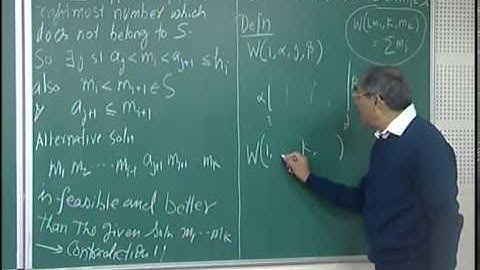 rightmost number which
does not belong to S.
So ∃ j st a_j < m_i < a_{j+1} ≤ h_i
also m_i < m_{i+1} ∈ S
y a_{j+1} ≤ m_{i+1}
Alternative soln
m_1 m_2 ... m_{i-1} a_{j+1} m_{i+1} ... m_k
is feasible and better
than the given soln m_1 ... m_k
→ Contradiction !!
Defn
W(1, α, j, β)
α
j
W(1, k, )
= ∑ m_i